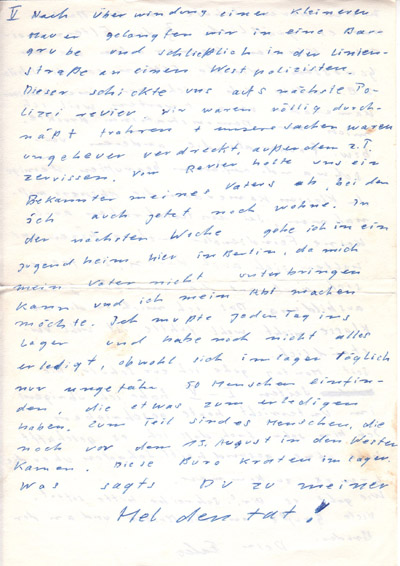 V Nach Überwindung einer kleineren
Mauer gelangten wir in eine Bau-
grube und schließlich in der Linien-
straße an einen Westpolizisten.
Dieser schickte uns aufs nächste Po-
lizei revier, wir waren völlig durch-
näßt + unsere Sachen waren
ungeheuer verdreckt, außerdem z.T.
zerrissen. Vom Revier holte uns ein
Bekannter meines Vaters ab, bei dem
ich auch jetzt noch wohne. In
der nächsten Woche gehe ich in ein
Jugendheim hier in Berlin, da mich
mein Vater nicht unterbringen
kann und ich mein Abi machen
möchte. Ich mußte jeden Tag ins
Lager und habe noch nicht alles
erledigt, obwohl sich im Lager täglich
nur ungefähr 50 Menschen einfin-
den, die etwas zum erledigen
haben. Zum Teil sind es Menschen, die
noch vor dem 13. August in den Westen
kamen. Diese Büro kraten im Lager.
Was sagts Du zu meiner
Heldentat!